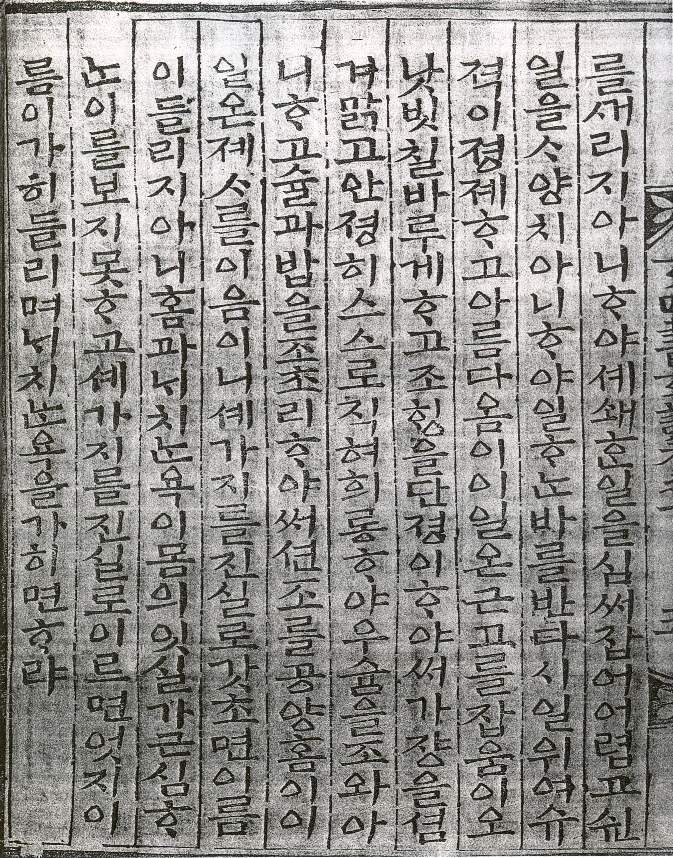 를ᄭᅥ리지아니ᄒᆞ야셰쇄ᄒᆞᆫ일을심써잡어어렵고쉬
일을ᄉᆞ양치아니ᄒᆞ야일ᄒᆞᄂᆞᆫ바를반다시일위여슈
젹이졍졔ᄒᆞ고아름다옴이이일온근고를잡움이오
낫빗칠바루게ᄒᆞ고조ᄒᆡᆼ을단졍이ᄒᆞ야써가쟝을셤
겨맑고안졍히스스로직혀희롱ᄒᆞ야우숨을조와아
니ᄒᆞ고술과밥을조쵸리ᄒᆞ야써션조를공양홈이이
일온졔ᄉᆞ를이음이니셰가지를진실로갓초면이름
이들리지아니홈과ᄂᆡ치ᄂᆞᆫ욕이몸의잇실가근심ᄒᆞ
ᄂᆞᆫ이를보지못ᄒᆞ고셰가지를진실로이르면엇지이
름이가히들리며ᄂᆡ치ᄂᆞᆫ욕을가히면ᄒᆞ랴